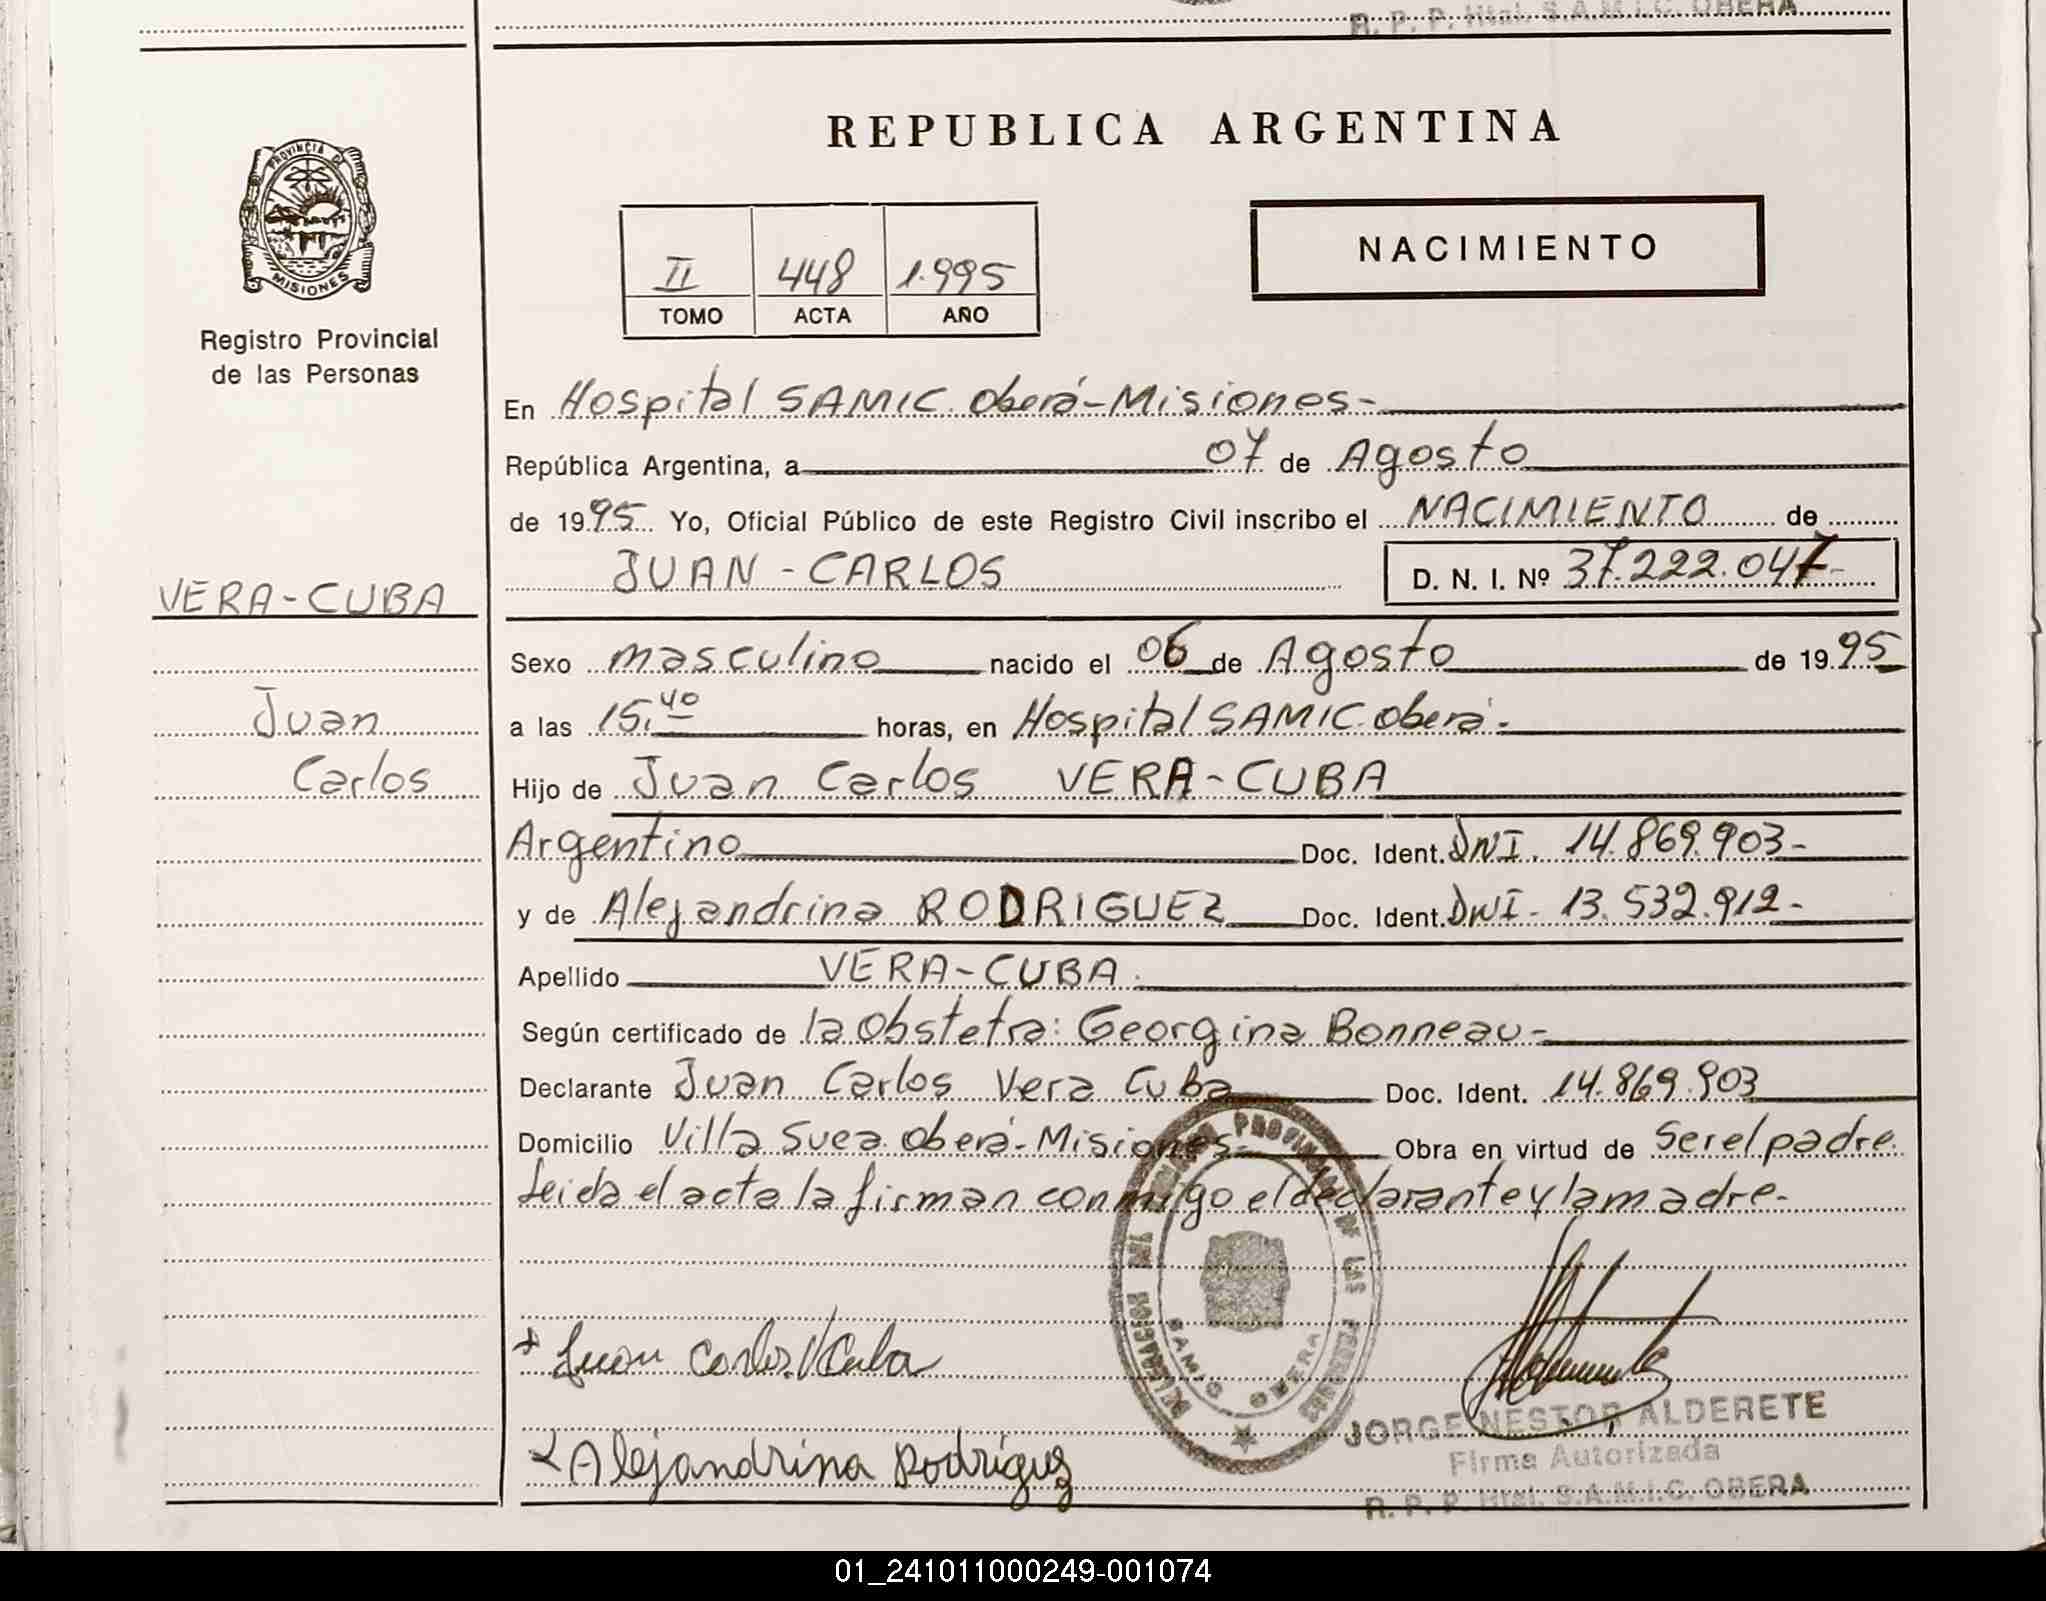 R. P. P. Htal. S.A.M.I.C. OBERA
REPUBLICA ARGENTINA
PROVINCIA DE
MISIONES
Registro Provincial
de las Personas
II 448 1.995
TOMO ACTA AÑO
NACIMIENTO
En Hospital SAMIC. Oberá-Misiones-
República Argentina, a 07 de Agosto
de 1995 Yo, Oficial Público de este Registro Civil inscribo el NACIMIENTO de
JUAN-CARLOS D. N. I. Nº 37.222.047-
VERA-CUBA
Juan
Carlos
Sexo masculino nacido el 06 de Agosto de 1995
a las 15.40 horas, en Hospital SAMIC. Oberá-
Hijo de Juan Carlos VERA-CUBA
Argentino Doc. Ident. DNI. 14.869.903-
y de Alejandrina RODRIGUEZ Doc. Ident. DNI- 13.532.912-
Apellido VERA-CUBA.
Según certificado de la Obstetra: Georgina Bonneau-
Declarante Juan Carlos Vera Cuba Doc. Ident. 14.869.903
Domicilio Villa Suea. Oberá-Misiones- Obra en virtud de Ser el padre.
Leida el acta la firman conmigo el declarante y la madre-
DELEGACION DEL REGISTRO PROVINCIAL DE LAS PERSONAS
SAMIC OBERA
Juan Carlos V Cuba
Alejandrina Rodriguez
JORGE NESTOR ALDERETE
Firma Autorizada
R. P. P. Htal. S.A.M.I.C. OBERA
01_241011000249-001074